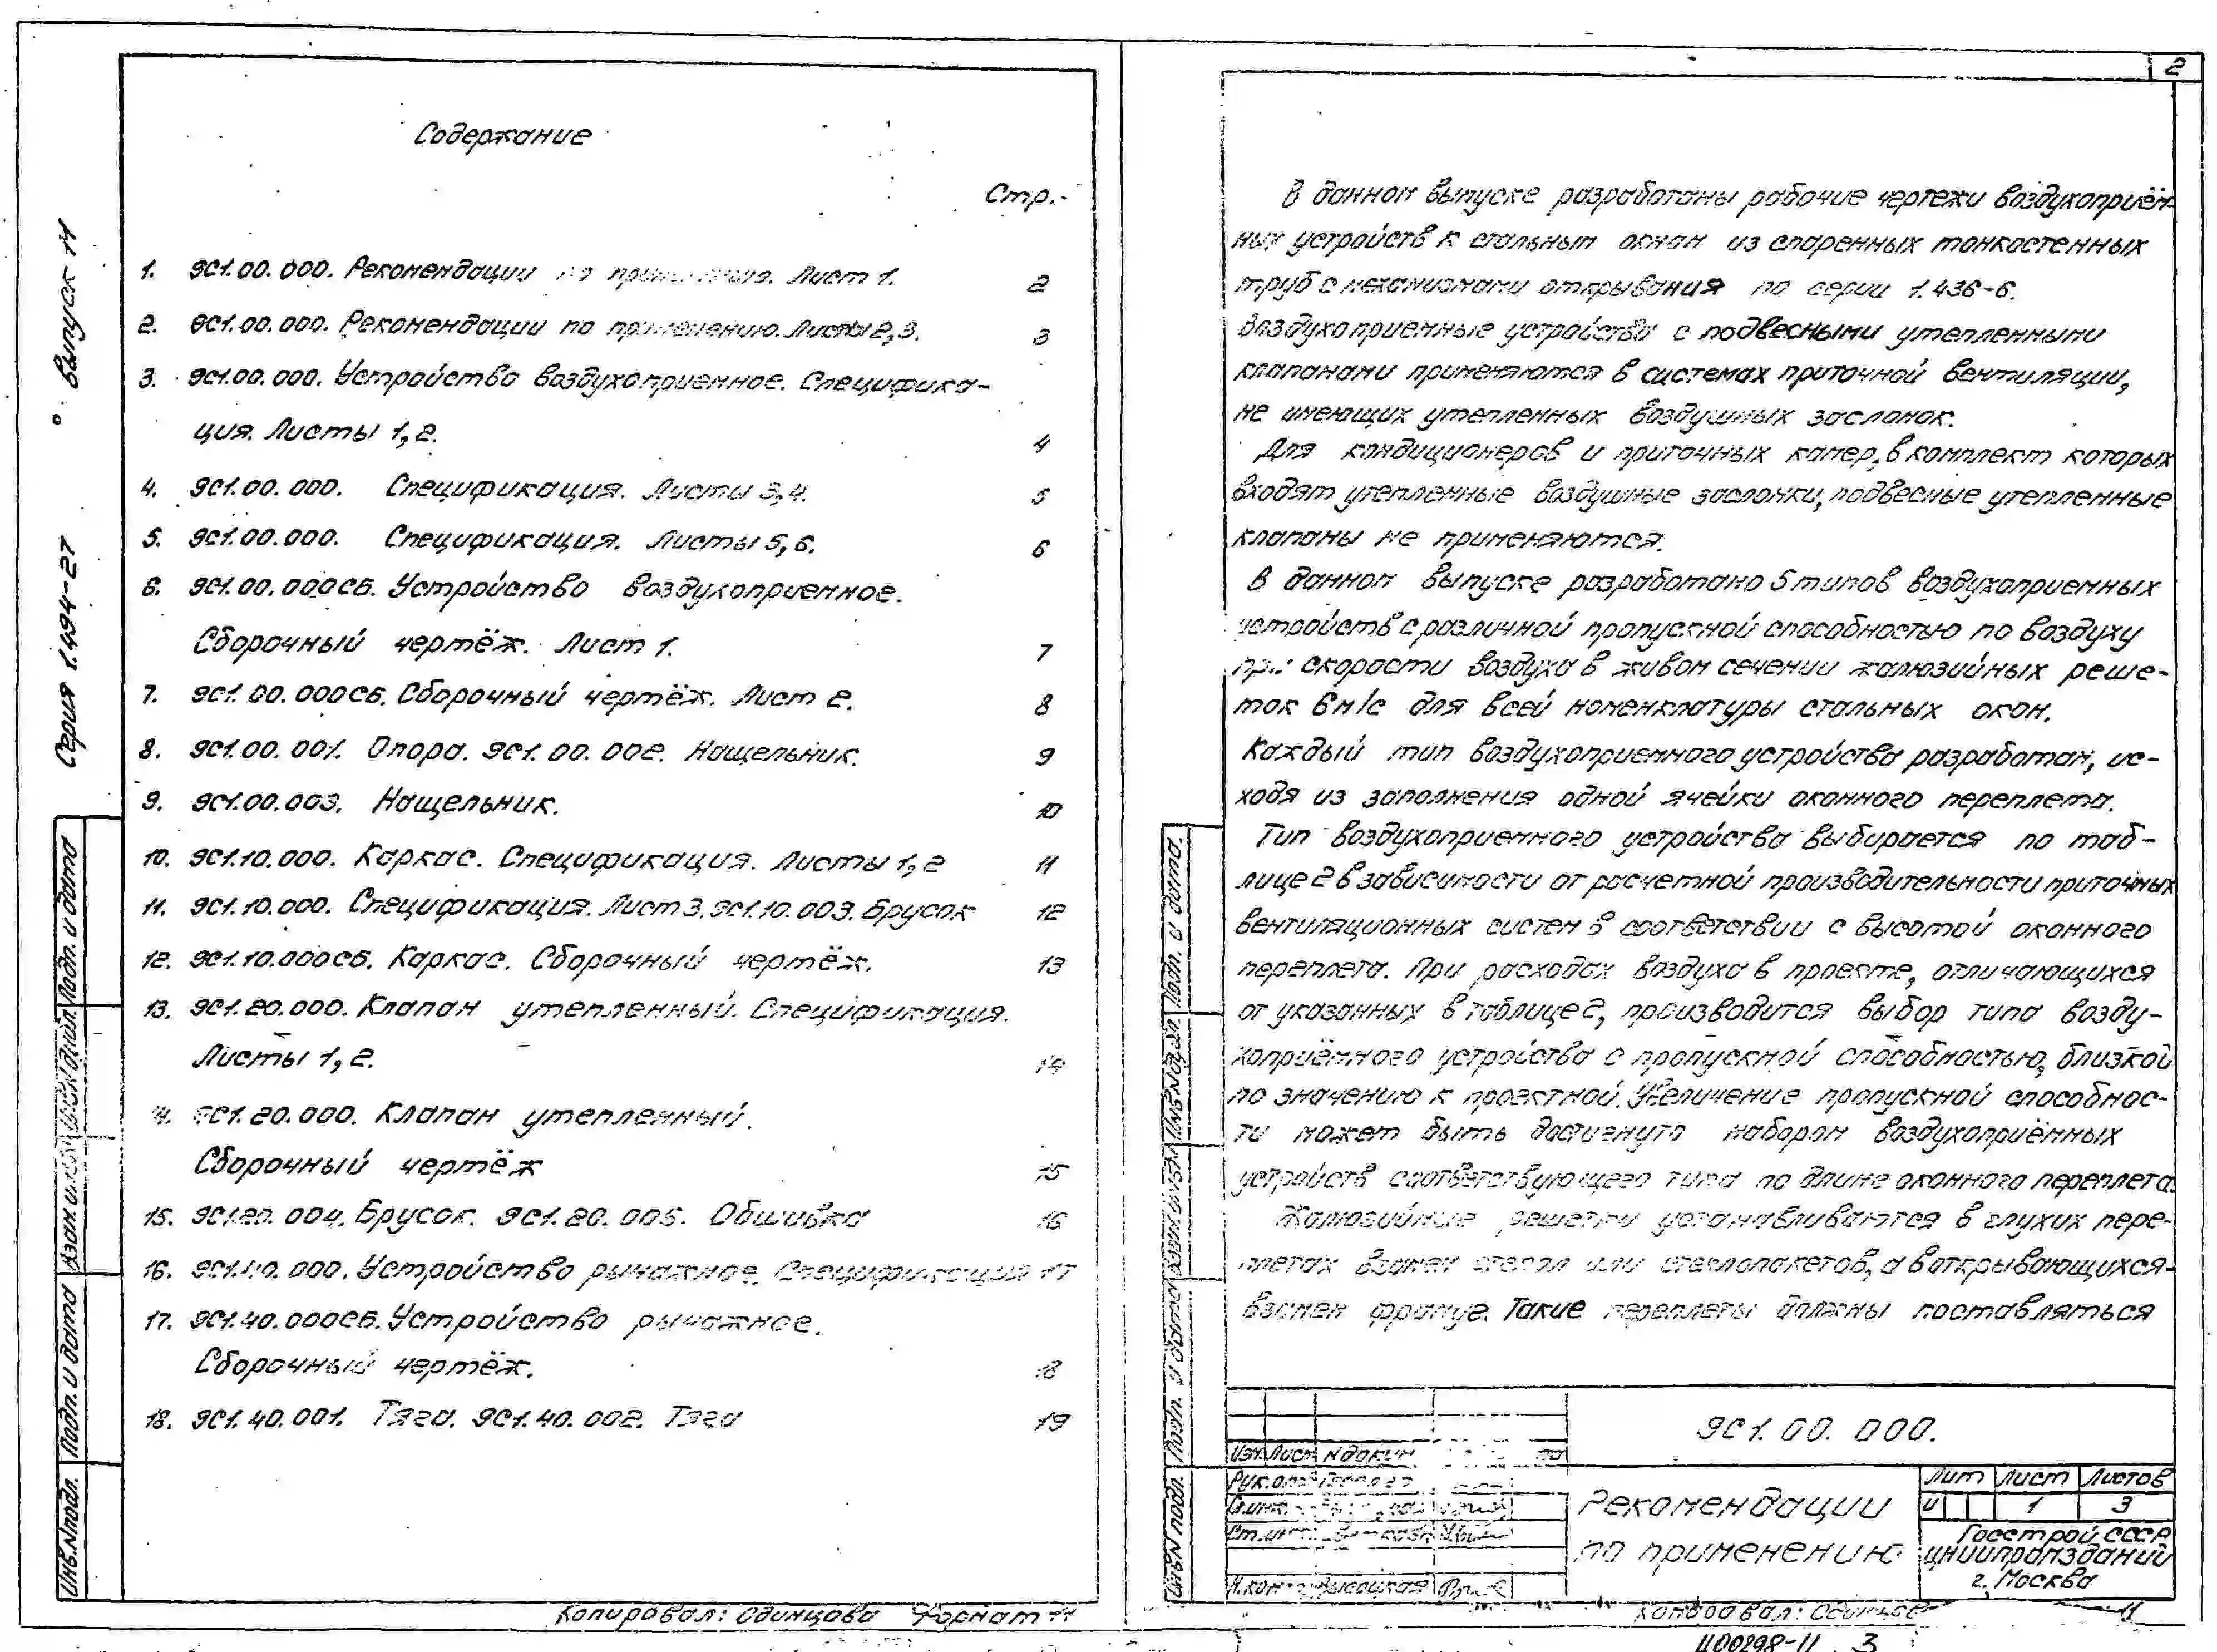 2
Содержание
Стр.
1. ЯС1.00.000. Рекомендации по применению. Лист 1. 2
2. ЯС1.00.000. Рекомендации по применению. Листы 2,3. 3
3. ЯС1.00.000. Устройство воздухоприемное. Специфика-
ция. Листы 1,2. 4
4. ЯС1.00.000. Спецификация. Листы 3,4. 5
5. ЯС1.00.000. Спецификация. Листы 5,6. 6
6. ЯС1.00.000СБ. Устройство воздухоприемное.
Сборочный чертёж. Лист 1. 7
7. ЯС1.00.000СБ. Сборочный чертёж. Лист 2. 8
8. ЯС1.00.001. Опора. ЯС1.00.002. Нащельник. 9
9. ЯС1.00.003. Нащельник. 10
10. ЯС1.10.000. Каркас. Спецификация. Листы 1,2 11
11. ЯС1.10.000. Спецификация. Лист 3. ЯС1.10.003. Брусок 12
12. ЯС1.10.000СБ. Каркас. Сборочный чертёж. 13
13. ЯС1.20.000. Клапан утепленный. Спецификация.
Листы 1,2. 14
14. ЯС1.20.000. Клапан утепленный.
Сборочный чертёж 15
15. ЯС1.20.004. Брусок. ЯС1.20.005. Обшивка 16
16. ЯС1.40.000. Устройство рычажное. Спецификация 17
17. ЯС1.40.000СБ. Устройство рычажное.
Сборочный чертёж. 18
18. ЯС1.40.001. Тяга. ЯС1.40.002. Тяга 19
Серия 1.494-27 выпуск 11
Подп. и дата
Взам. инв.
Подп. и дата
Инв.№подл.
Копировал: Одинцова Формат 11
В данном выпуске разработаны рабочие чертежи воздухоприём-
ных устройств к стальным окнам из спаренных тонкостенных
труб с механизмами открывания по серии 1.436-6.
Воздухоприемные устройства с подвесными утепленными
клапанами применяются в системах приточной вентиляции,
не имеющих утепленных воздушных заслонок.
Для кондиционеров и приточных камер, в комплект которых
входят утепленные воздушные заслонки, подвесные утепленные
клапаны не применяются.
В данном выпуске разработано 5 типов воздухоприемных
устройств с различной пропускной способностью по воздуху
при скорости воздуха в живом сечении жалюзийных реше-
ток 6м/с для всей номенклатуры стальных окон.
Каждый тип воздухоприемного устройства разработан, ис-
ходя из заполнения одной ячейки оконного переплета.
Тип воздухоприемного устройства выбирается по таб-
лице 2 в зависимости от расчетной производительности приточных
вентиляционных систем в соответствии с высотой оконного
переплета. При расходах воздуха в проекте, отличающихся
от указанных в таблице 2, производится выбор типа возду-
хоприёмного устройства с пропускной способностью, близкой
по значению к проектной. Увеличение пропускной способнос-
ти может быть достигнуто набором воздухоприёмных
устройств соответствующего типа по длине оконного переплета.
Жалюзийные решетки устанавливаются в глухих пере-
плетах взамен стекол или стеклопакетов, а в открывающихся-
взамен фрамуг. Такие переплеты должны поставляться
Изм. Лист №докум
ЯС1.00.000.
Рекомендации
по применению
Лит Лист Листов
И 1 3
Госстрой СССР
ЦНИИпромзданий
г. Москва
Н.конт. Высоцкая
Подп. и дата
Подп. и дата
Инв№ подл.
Копировал: Одинцова 11
Ц00298-11 3